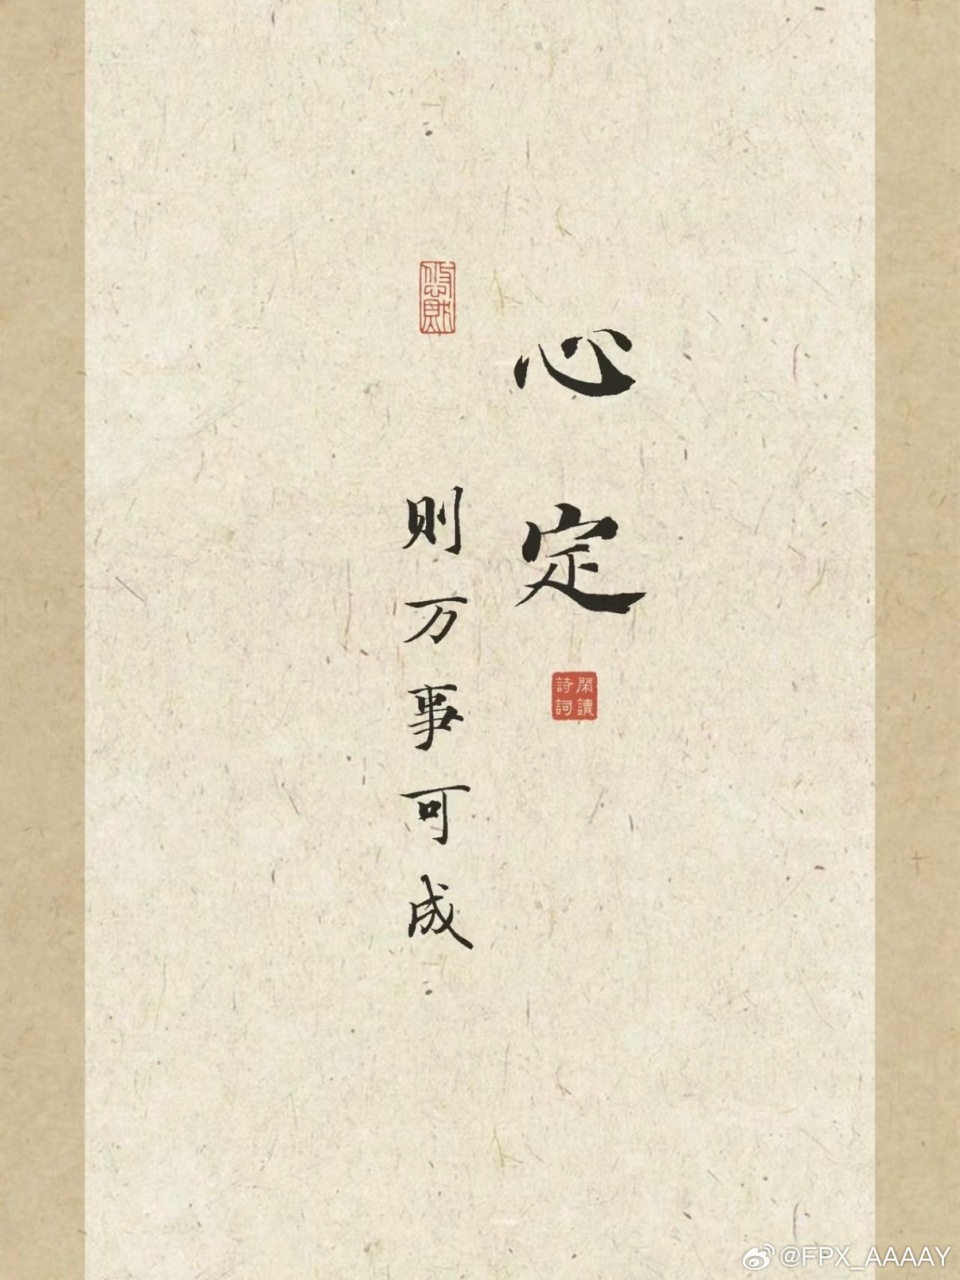 心定
閑讀
詩詞
则万事可成
@FPX_AAAAY